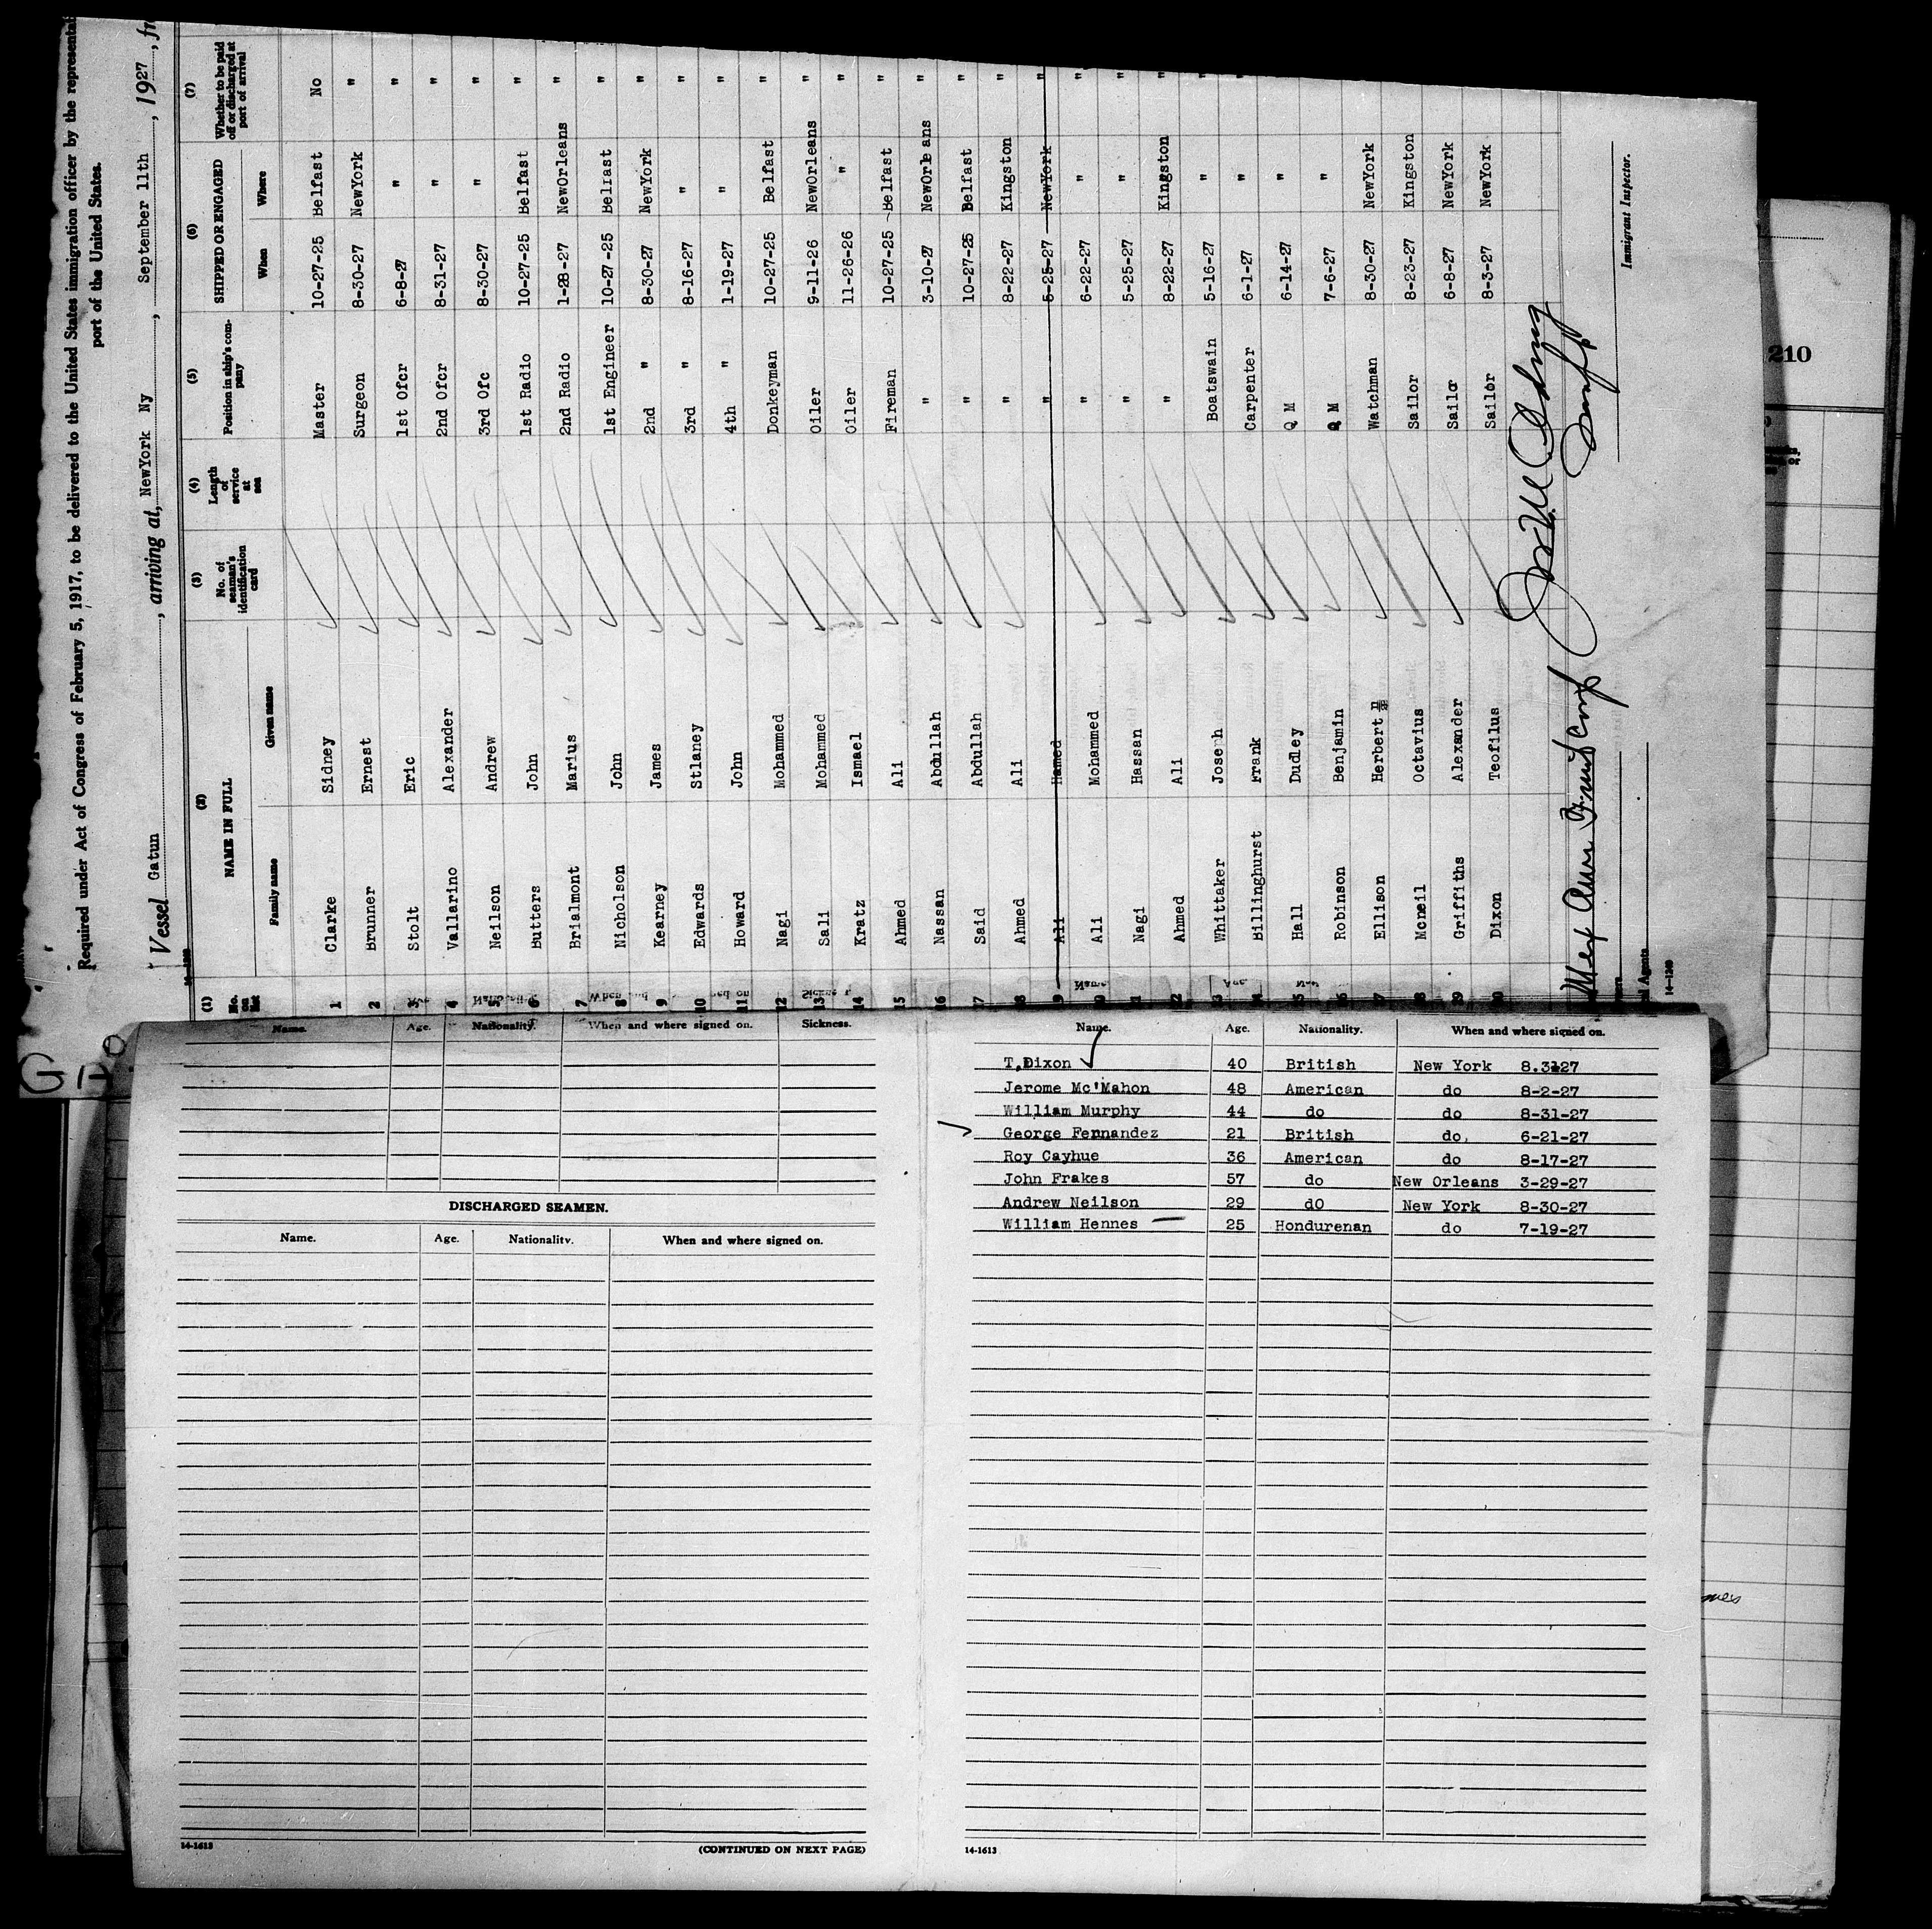 Required under Act of Congress of February 5, 1917, to be delivered to the United States immigration officer by the
port of the United States.
Vessel Gatun, arriving at, NewYork Ny, September 11th, 1927,
(1) (2) (3) (4) (5) (6) (7)
No. on list NAME IN FULL No. of seaman's identification card Length of service at sea Position in ship's company SHIPPED OR ENGAGED Whether to be paid off or discharged at port of arrival
Family name Given name When Where
1 Clarke Sidney Master 10-27-25 Belfast No
2 Brunner Ernest Surgeon 8-30-27 NewYork "
3 Stolt Eric 1st Ofcr 6-8-27 " "
4 Vallarino Alexander 2nd Ofcr 8-31-27 " "
5 Neilson Andrew 3rd Ofc 8-30-27 " "
6 Butters John 1st Radio 10-27-25 Belfast "
7 Brialmont Marius 2nd Radio 1-28-27 NewOrleans "
8 Nicholson John 1st Engineer 10-27-25 Belfast "
9 Kearney James 2nd " 8-30-27 NewYork "
10 Edwards Stlaney 3rd " 8-16-27 " "
11 Howard John 4th " 1-19-27 " "
12 Nagi Mohammed Donkeyman 10-27-25 Belfast "
13 Sali Mohammed Oiler 9-11-26 NewOrleans "
14 Kratz Ismael Oiler 11-26-26 " "
15 Ahmed Ali Fireman 10-27-25 Belfast "
16 Nassan Abdullah " 3-10-27 NewOrleans "
17 Said Abdullah " 10-27-25 Belfast "
18 Ahmed Ali " 8-22-27 Kingston "
19 Ali Hamed " 5-25-27 NewYork "
20 Ali Mohammed " 6-22-27 " "
21 Nagi Hassan " 5-25-27 " "
22 Ahmed Ali " 8-22-27 Kingston "
23 Whittaker Joseph Boatswain 5-16-27 " "
24 Billinghurst Frank Carpenter 6-1-27 " "
25 Hall Dudley Q M 6-14-27 "
26 Robinson Benjamin Q M 7-6-27 "
27 Ellison Herbert Watchman 8-30-27 NewYork
28 Mcneil Octavius Sailor 8-23-27 Kingston
29 Griffiths Alexander Sailor 6-8-27 NewYork
30 Dixon Teofilus Sailor 8-3-27 NewYork
Immigrant Inspector.
14-1240
210
Name. Age. Nationality. When and where signed on. Sickness.
DISCHARGED SEAMEN.
Name. Age. Nationality. When and where signed on.
14-1613 (CONTINUED ON NEXT PAGE)
Name. Age. Nationality. When and where signed on.
T,Dixon 40 British New York
Jerome Mc'Mahon 48 American do 8-2-27
William Murphy 44 do do 8-31-27
George Fernandez 21 British do, 6-21-27
Roy Cayhue 36 American do 8-17-27
John Frakes 57 do New Orleans 3-29-27
Andrew Neilson 29 dO New York 8-30-27
William Hennes 25 Hondurenan do 7-19-27
14-1613